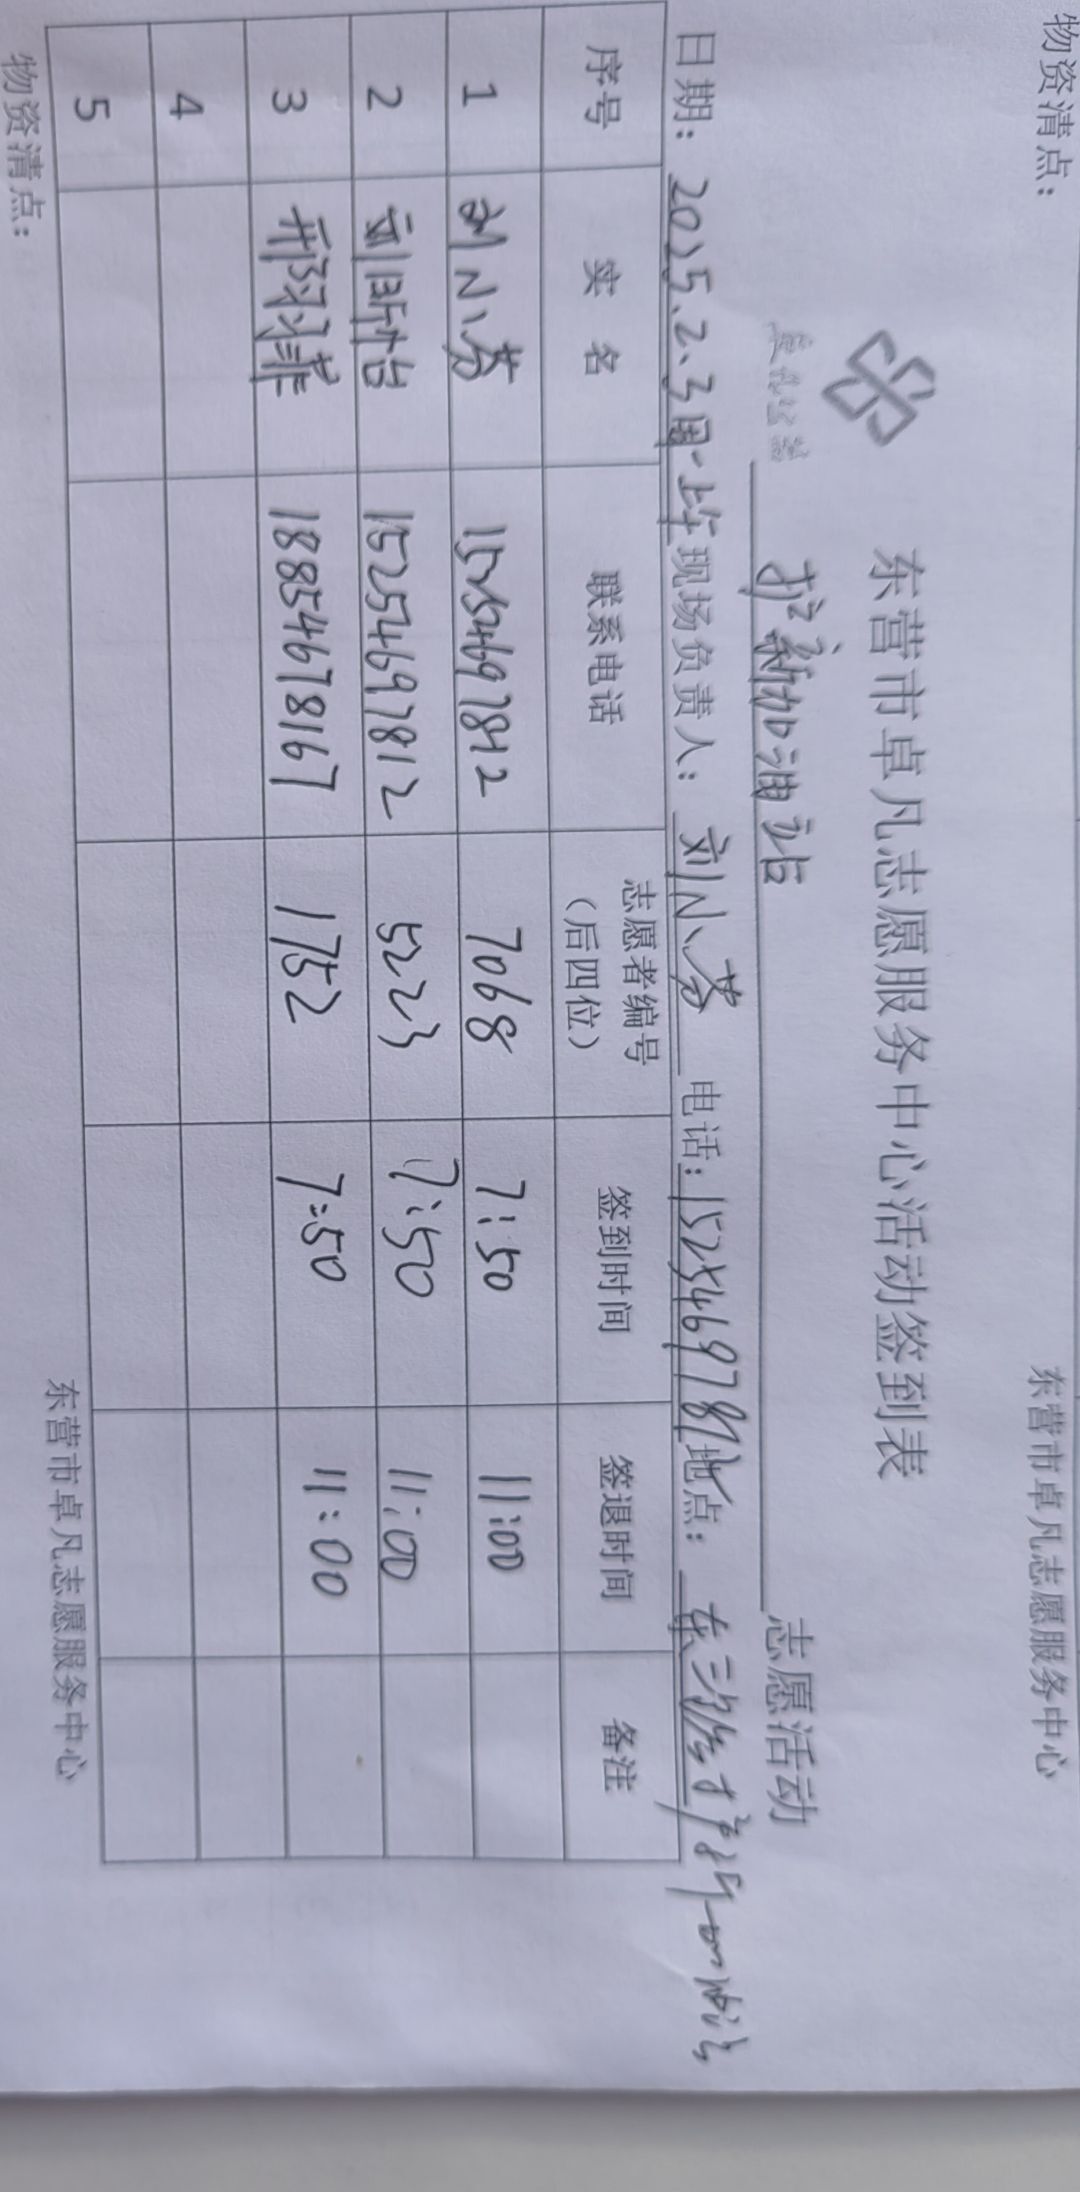 物资清点： 东营市卓凡志愿服务中心
东营市卓凡志愿服务中心活动签到表
护新加油站 志愿活动
日期：2025.2.3周一上午 现场负责人：刘小芬 电话：152546978 地点：东三路
序号 实 名 联系电话 志愿者编号（后四位） 签到时间 签退时间 备注
1 刘小芬 15254697812 7068 7:50 11:00
2 15254697812 5223 7:50 11:00
3 18854678167 1752 7:50 11:00
4
5
物资清点： 东营市卓凡志愿服务中心